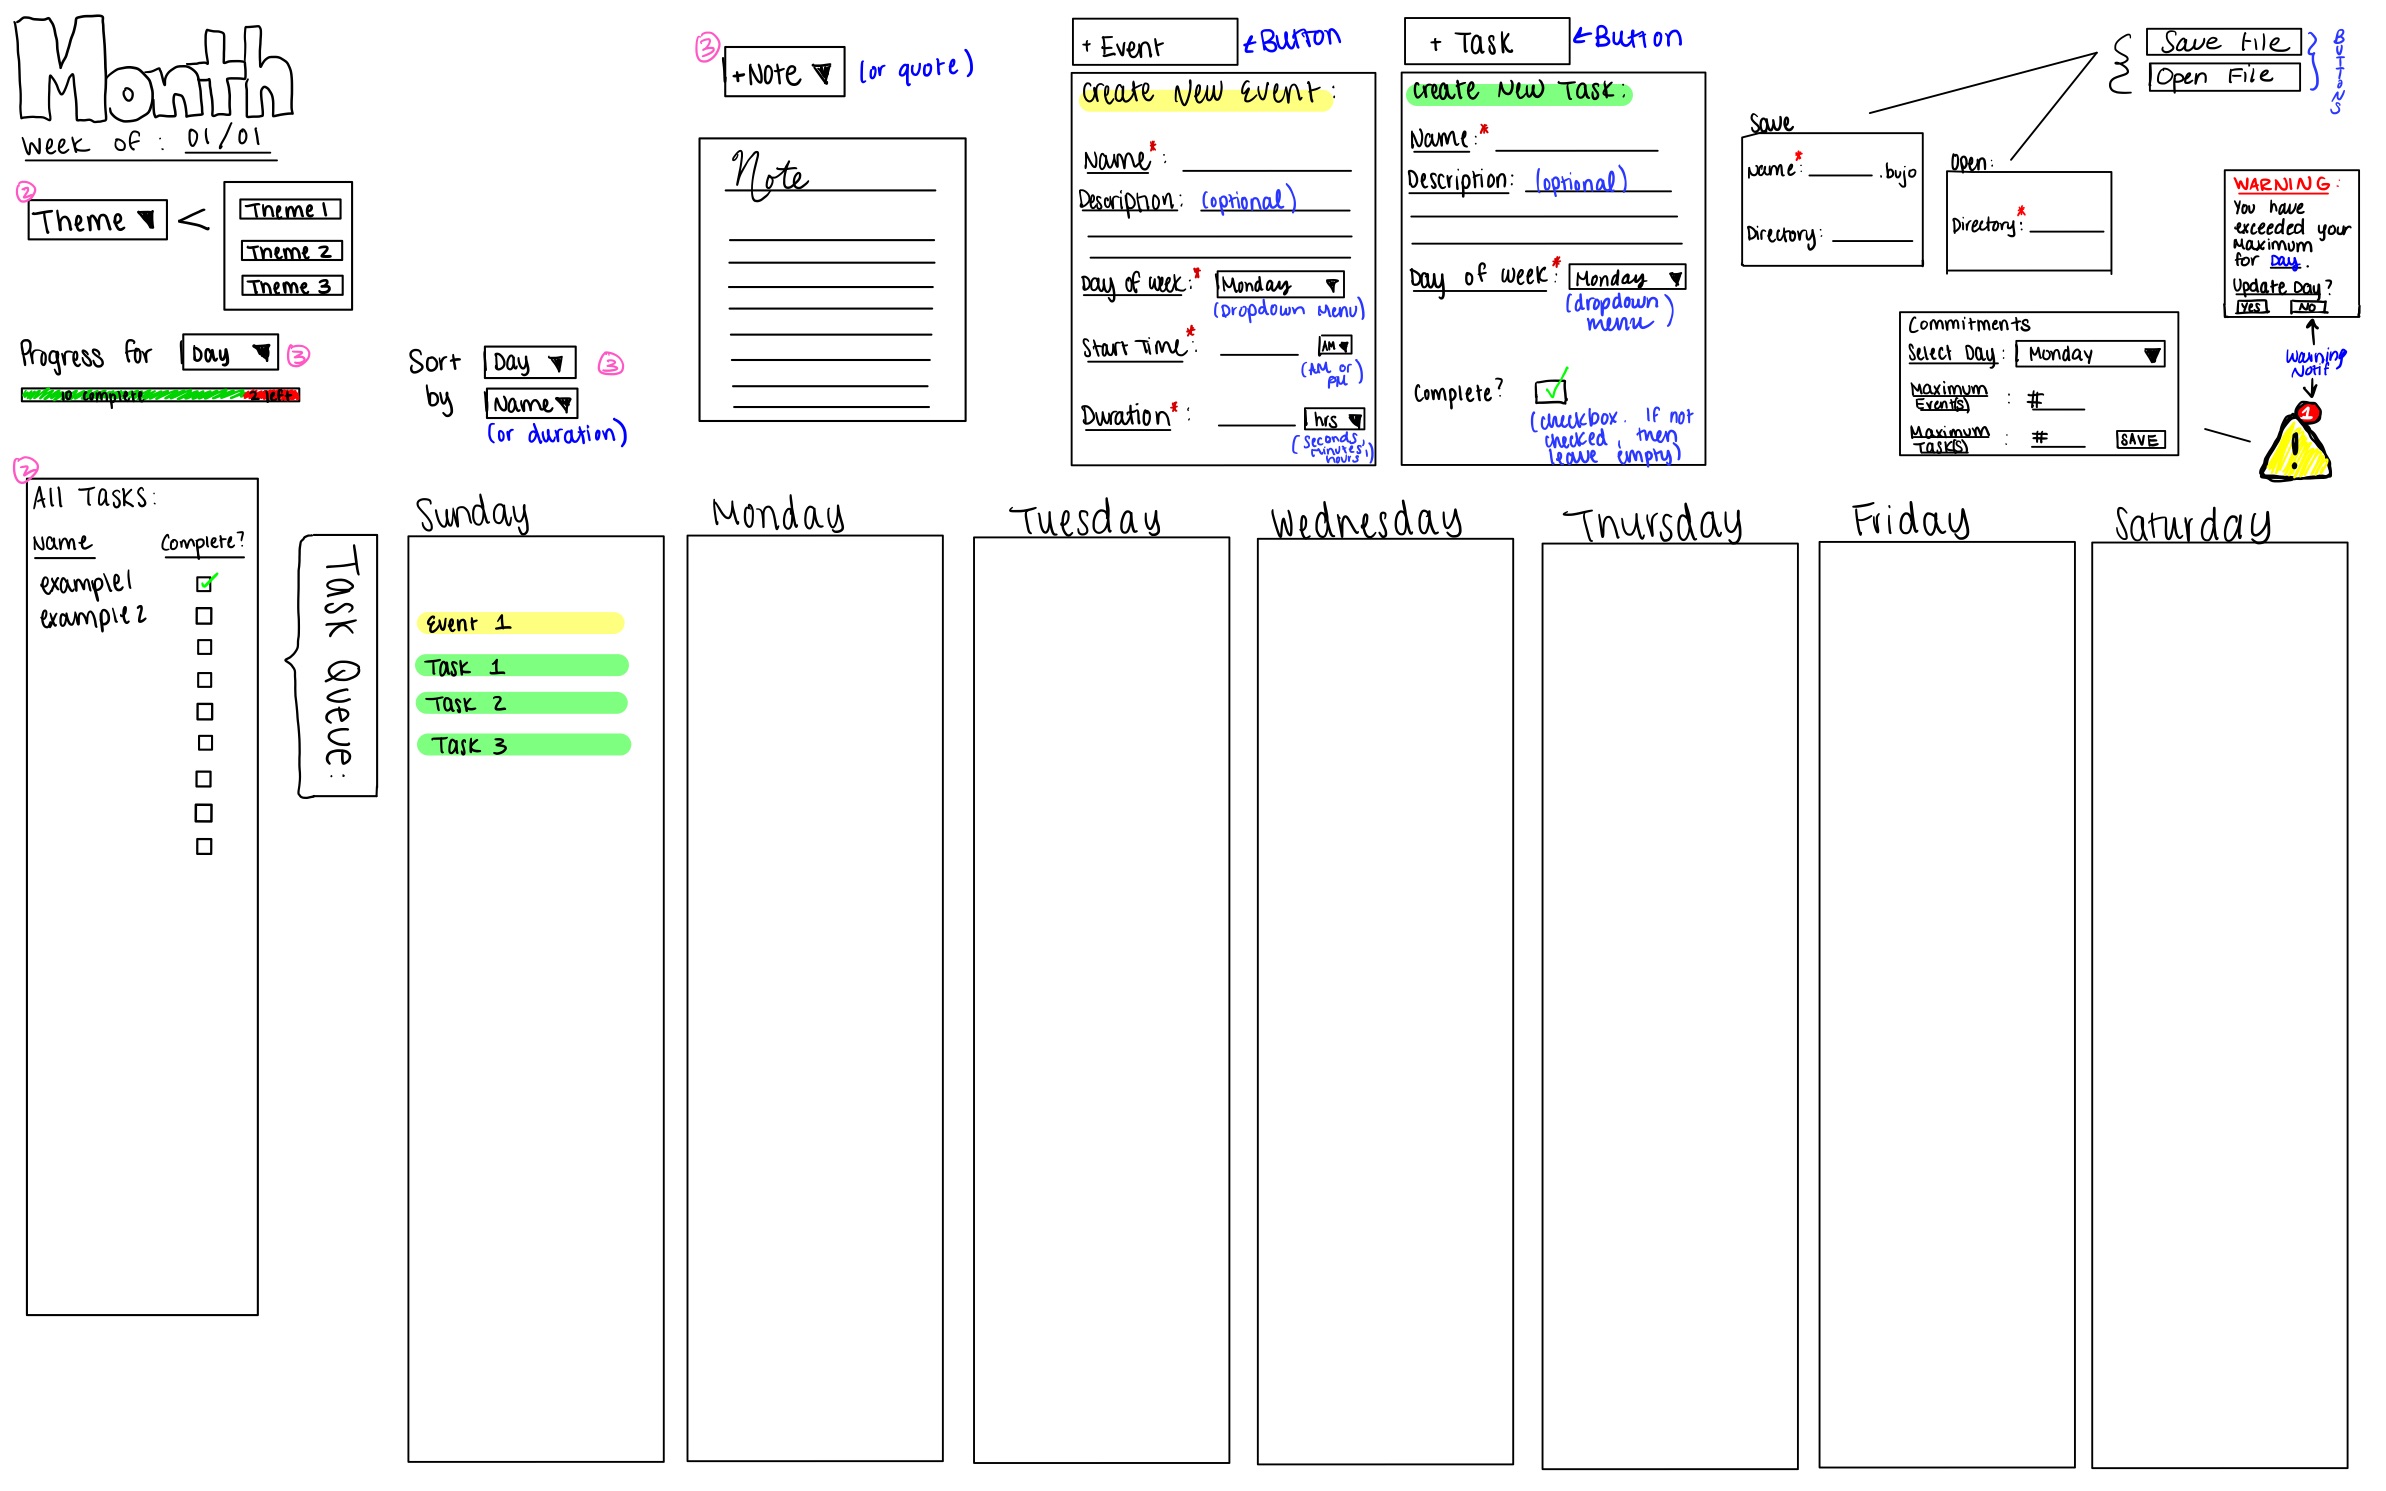 Month
Week of : 01/01
2
Theme
Theme 1
Theme 2
Theme 3
Progress for Day 3
10 complete 2 left
Sort by Day 3
Name
(or duration)
3
+Note (or quote)
Note
+ Event ← Button
Create New Event:
Name*:
Description: (optional)
Day of week:* Monday
(Dropdown Menu)
Start Time*: AM
(AM or PM)
Duration*: hrs
(seconds, minutes, hours)
+ Task ← Button
Create New Task:
Name:*
Description: (optional)
Day of week*: Monday
(dropdown menu)
Complete?
(checkbox. If not
checked, then
leave empty)
Save File
Open File
BUTTONS
Save
Name*: .bujo
Directory:
Open:
Directory*:
WARNING:
You have
exceeded your
Maximum
for Day.
Update Day?
Yes No
Warning
Notif
1
!
Commitments
Select Day: Monday
Maximum
Event(s) : #
Maximum
Task(s) : # SAVE
2
All Tasks:
Name Complete?
example1
example2
Task Queue:
Sunday
Event 1
Task 1
Task 2
Task 3
Monday
Tuesday
Wednesday
Thursday
Friday
Saturday